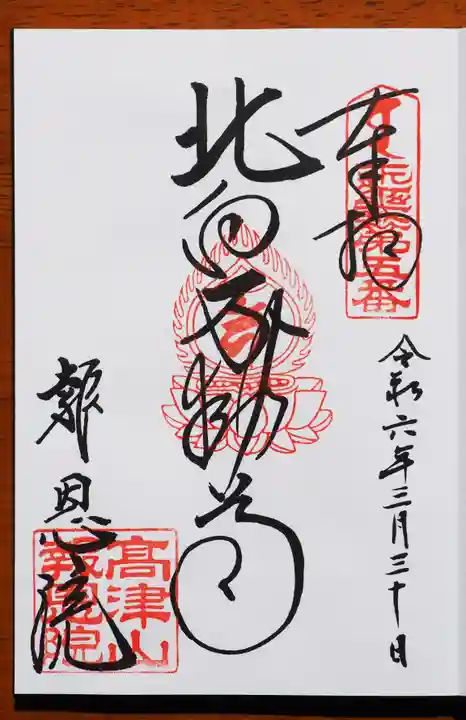 奉拝
令和六年三月三十日
北向不動尊
報恩院
第五番
高津山
報恩院